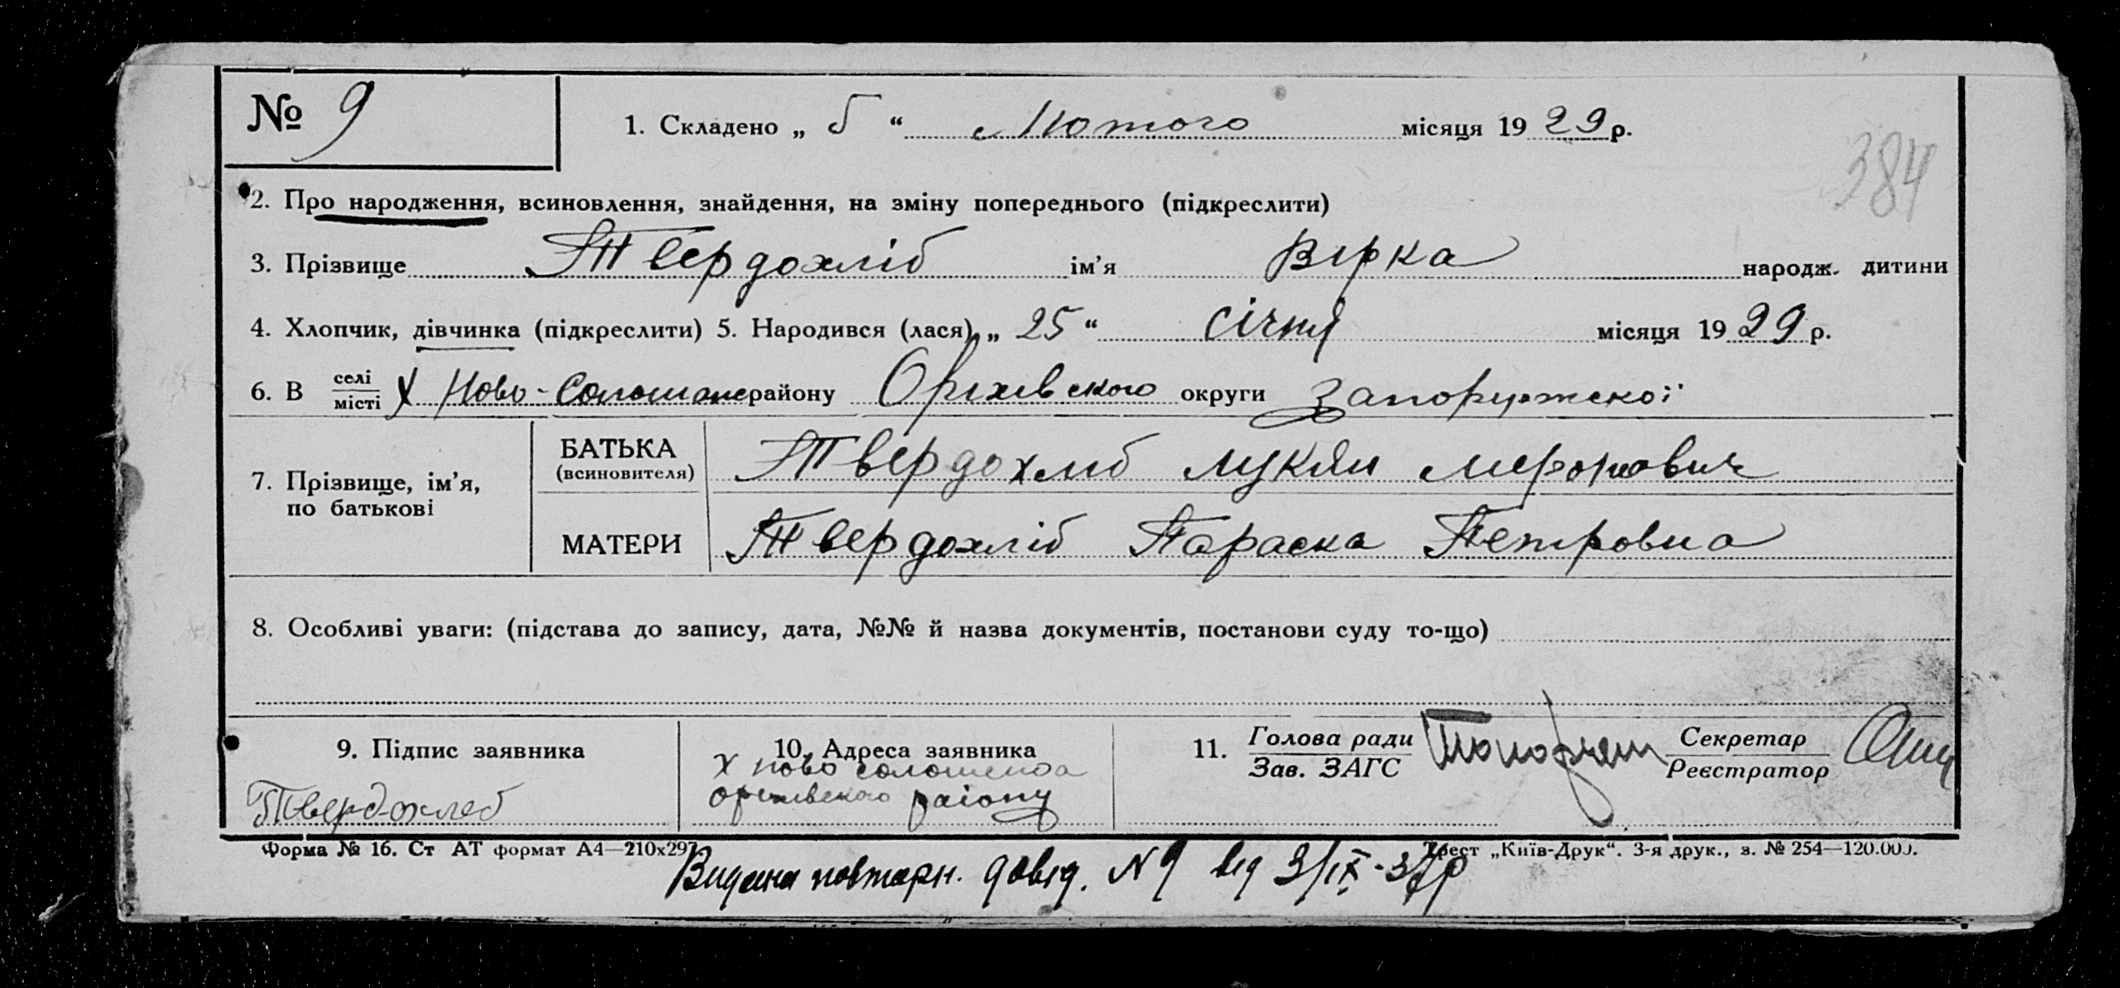 № 9
1. Складено „ 5 “ Лютого місяця 1929 р.
384
2. Про народження, всиновлення, знайдення, на зміну попереднього (підкреслити)
3. Прізвище Твердохліб ім’я Вірка народж. дитини
4. Хлопчик, дівчинка (підкреслити) 5. Народився (лася) „ 25 “ січня місяця 1929 р.
6. В селі / місті х Ново-Солошине району Оріхівського округи Запоружської
7. Прізвище, ім’я, по батькові
БАТЬКА (всиновителя) Твердохліб Лукян Миронович
МАТЕРИ Твердохліб Параска Петровна
8. Особливі уваги: (підстава до запису, дата, №№ й назва документів, постанови суду то-що)
9. Підпис заявника
Твердохлеб
10. Адреса заявника
х Ново солошеноа
оріхивского раіону
11. Голова ради / Зав. ЗАГС
Секретар / Реєстратор
Форма № 16. Ст АТ формат А4—210х297
Трест „Київ-Друк“. 3-я друк., з. № 254—120.000.
Видана повторн. довід. N 9 від 3/ІХ-37р